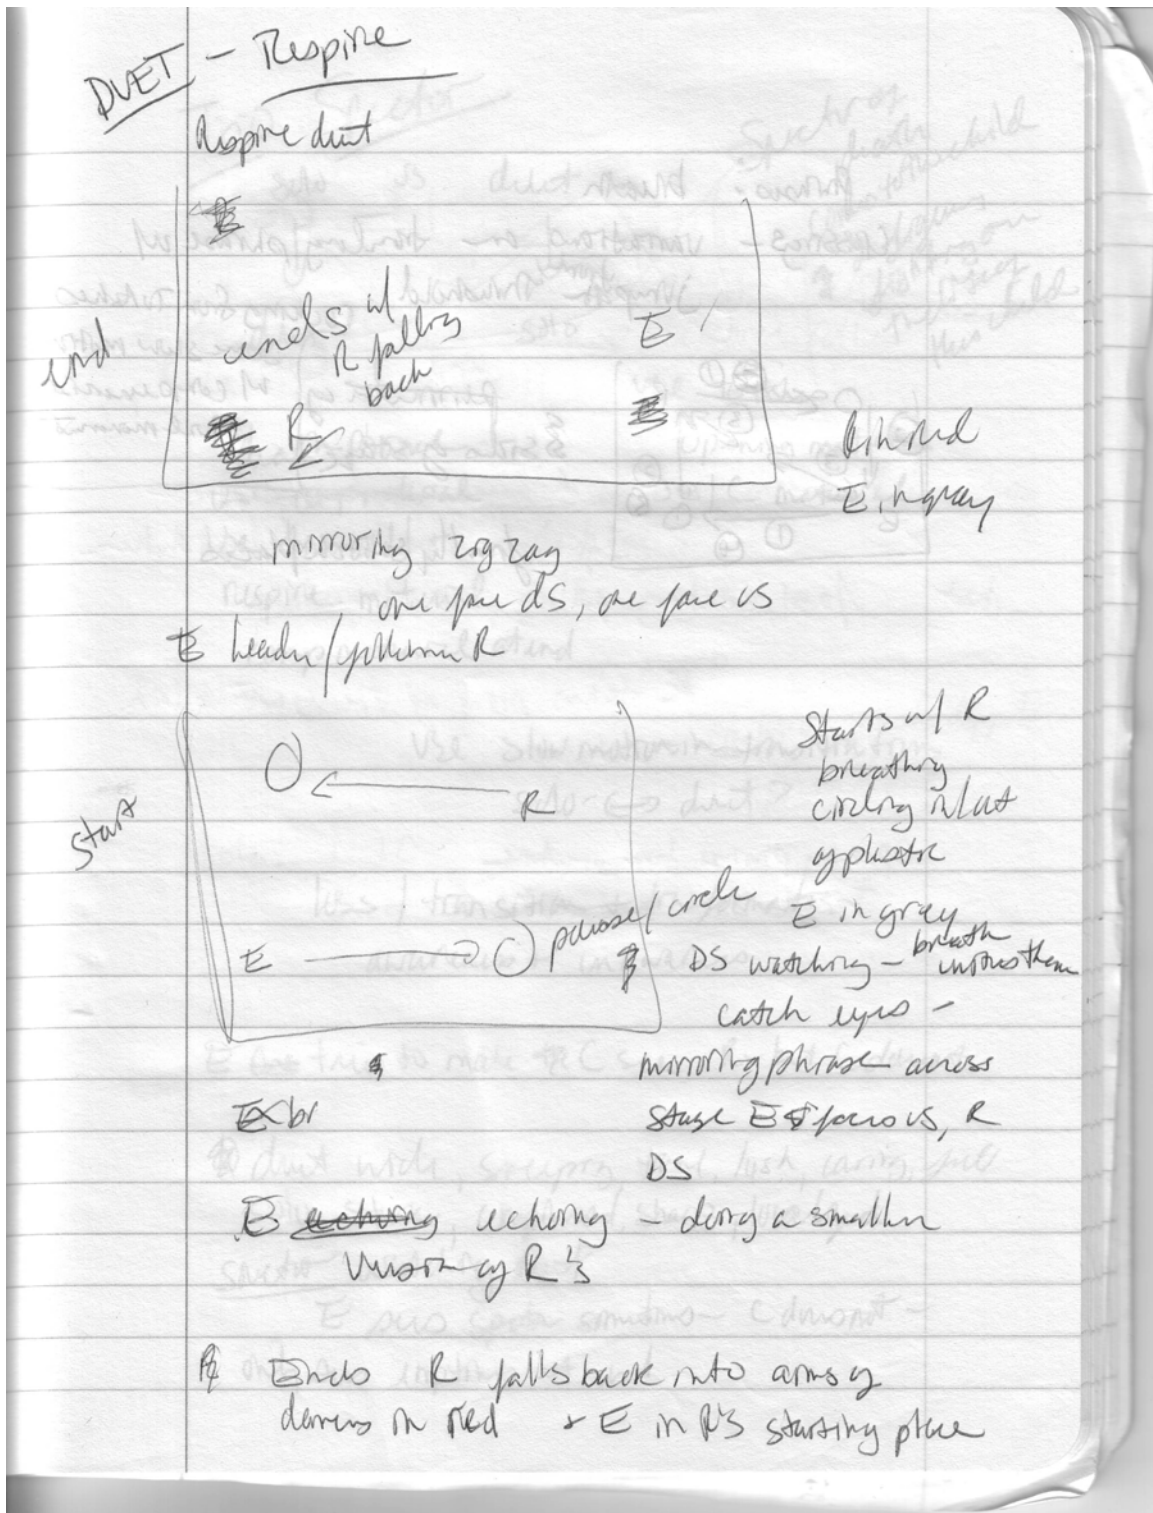 DUET - Respire
Respire duet
end
ends w/
R falling
back
E
R
R in red
E in gray
mirroring zig zag
one face DS, one face US
E leader / follower R
start
R
E
pause / circle
Starts w/ R
breathing
circling in/out
of plastic
E in gray
DS watching - breath
unites them
catch eyes -
mirroring phrase across
stage E faces US, R
DS
E br
E echoing echoing - doing a smaller
version of R's
Ends R falls back into arms of
dancers in red + E in R's starting place